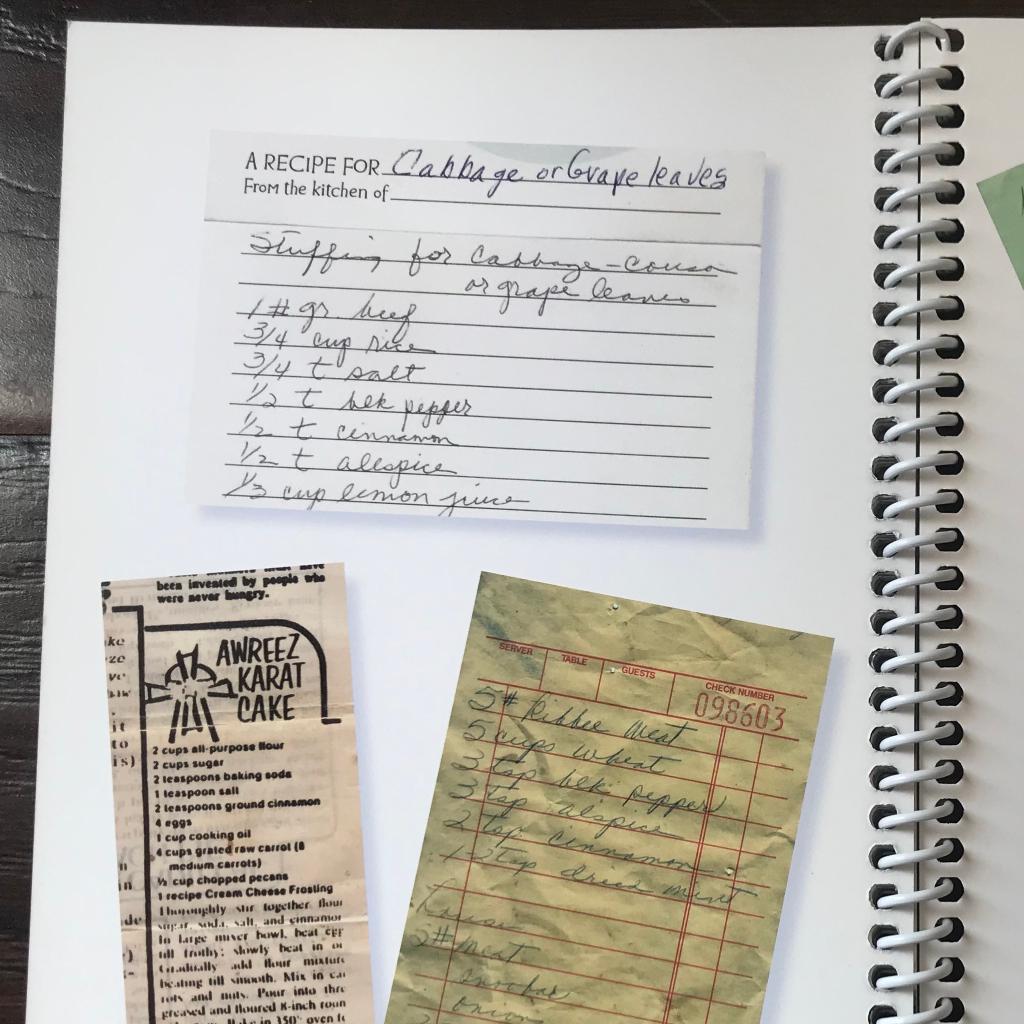 A RECIPE FOR Cabbage or Grape leaves
From the kitchen of
Stuffing for Cabbage - cousa
or grape leaves
1 # gr. beef
3/4 cup rice
3/4 t salt
1/2 t blk pepper
1/2 t cinnamon
1/2 t allspice
1/3 cup lemon juice
been invented by people who
were never hungry.
AWREEZ
KARAT
CAKE
2 cups all-purpose flour
2 cups sugar
2 teaspoons baking soda
1 teaspoon salt
2 teaspoons ground cinnamon
4 eggs
1 cup cooking oil
4 cups grated raw carrot (8
medium carrots)
½ cup chopped pecans
1 recipe Cream Cheese Frosting
Thoroughly stir together flour
sugar, soda, salt, and cinnamon
In large mixer bowl, beat egg
till frothy; slowly beat in
Gradually add flour mixture
beating till smooth. Mix in
rots and nuts. Pour into
greased and floured 8-inch
in 350° oven
SERVER TABLE GUESTS CHECK NUMBER
098603
5# Kibbee Meat
5 cups wheat
3 tsp blk pepper
3 tsp Alspice
2 tsp cinnamon
1-2 tsp dried mint
2# meat
onions